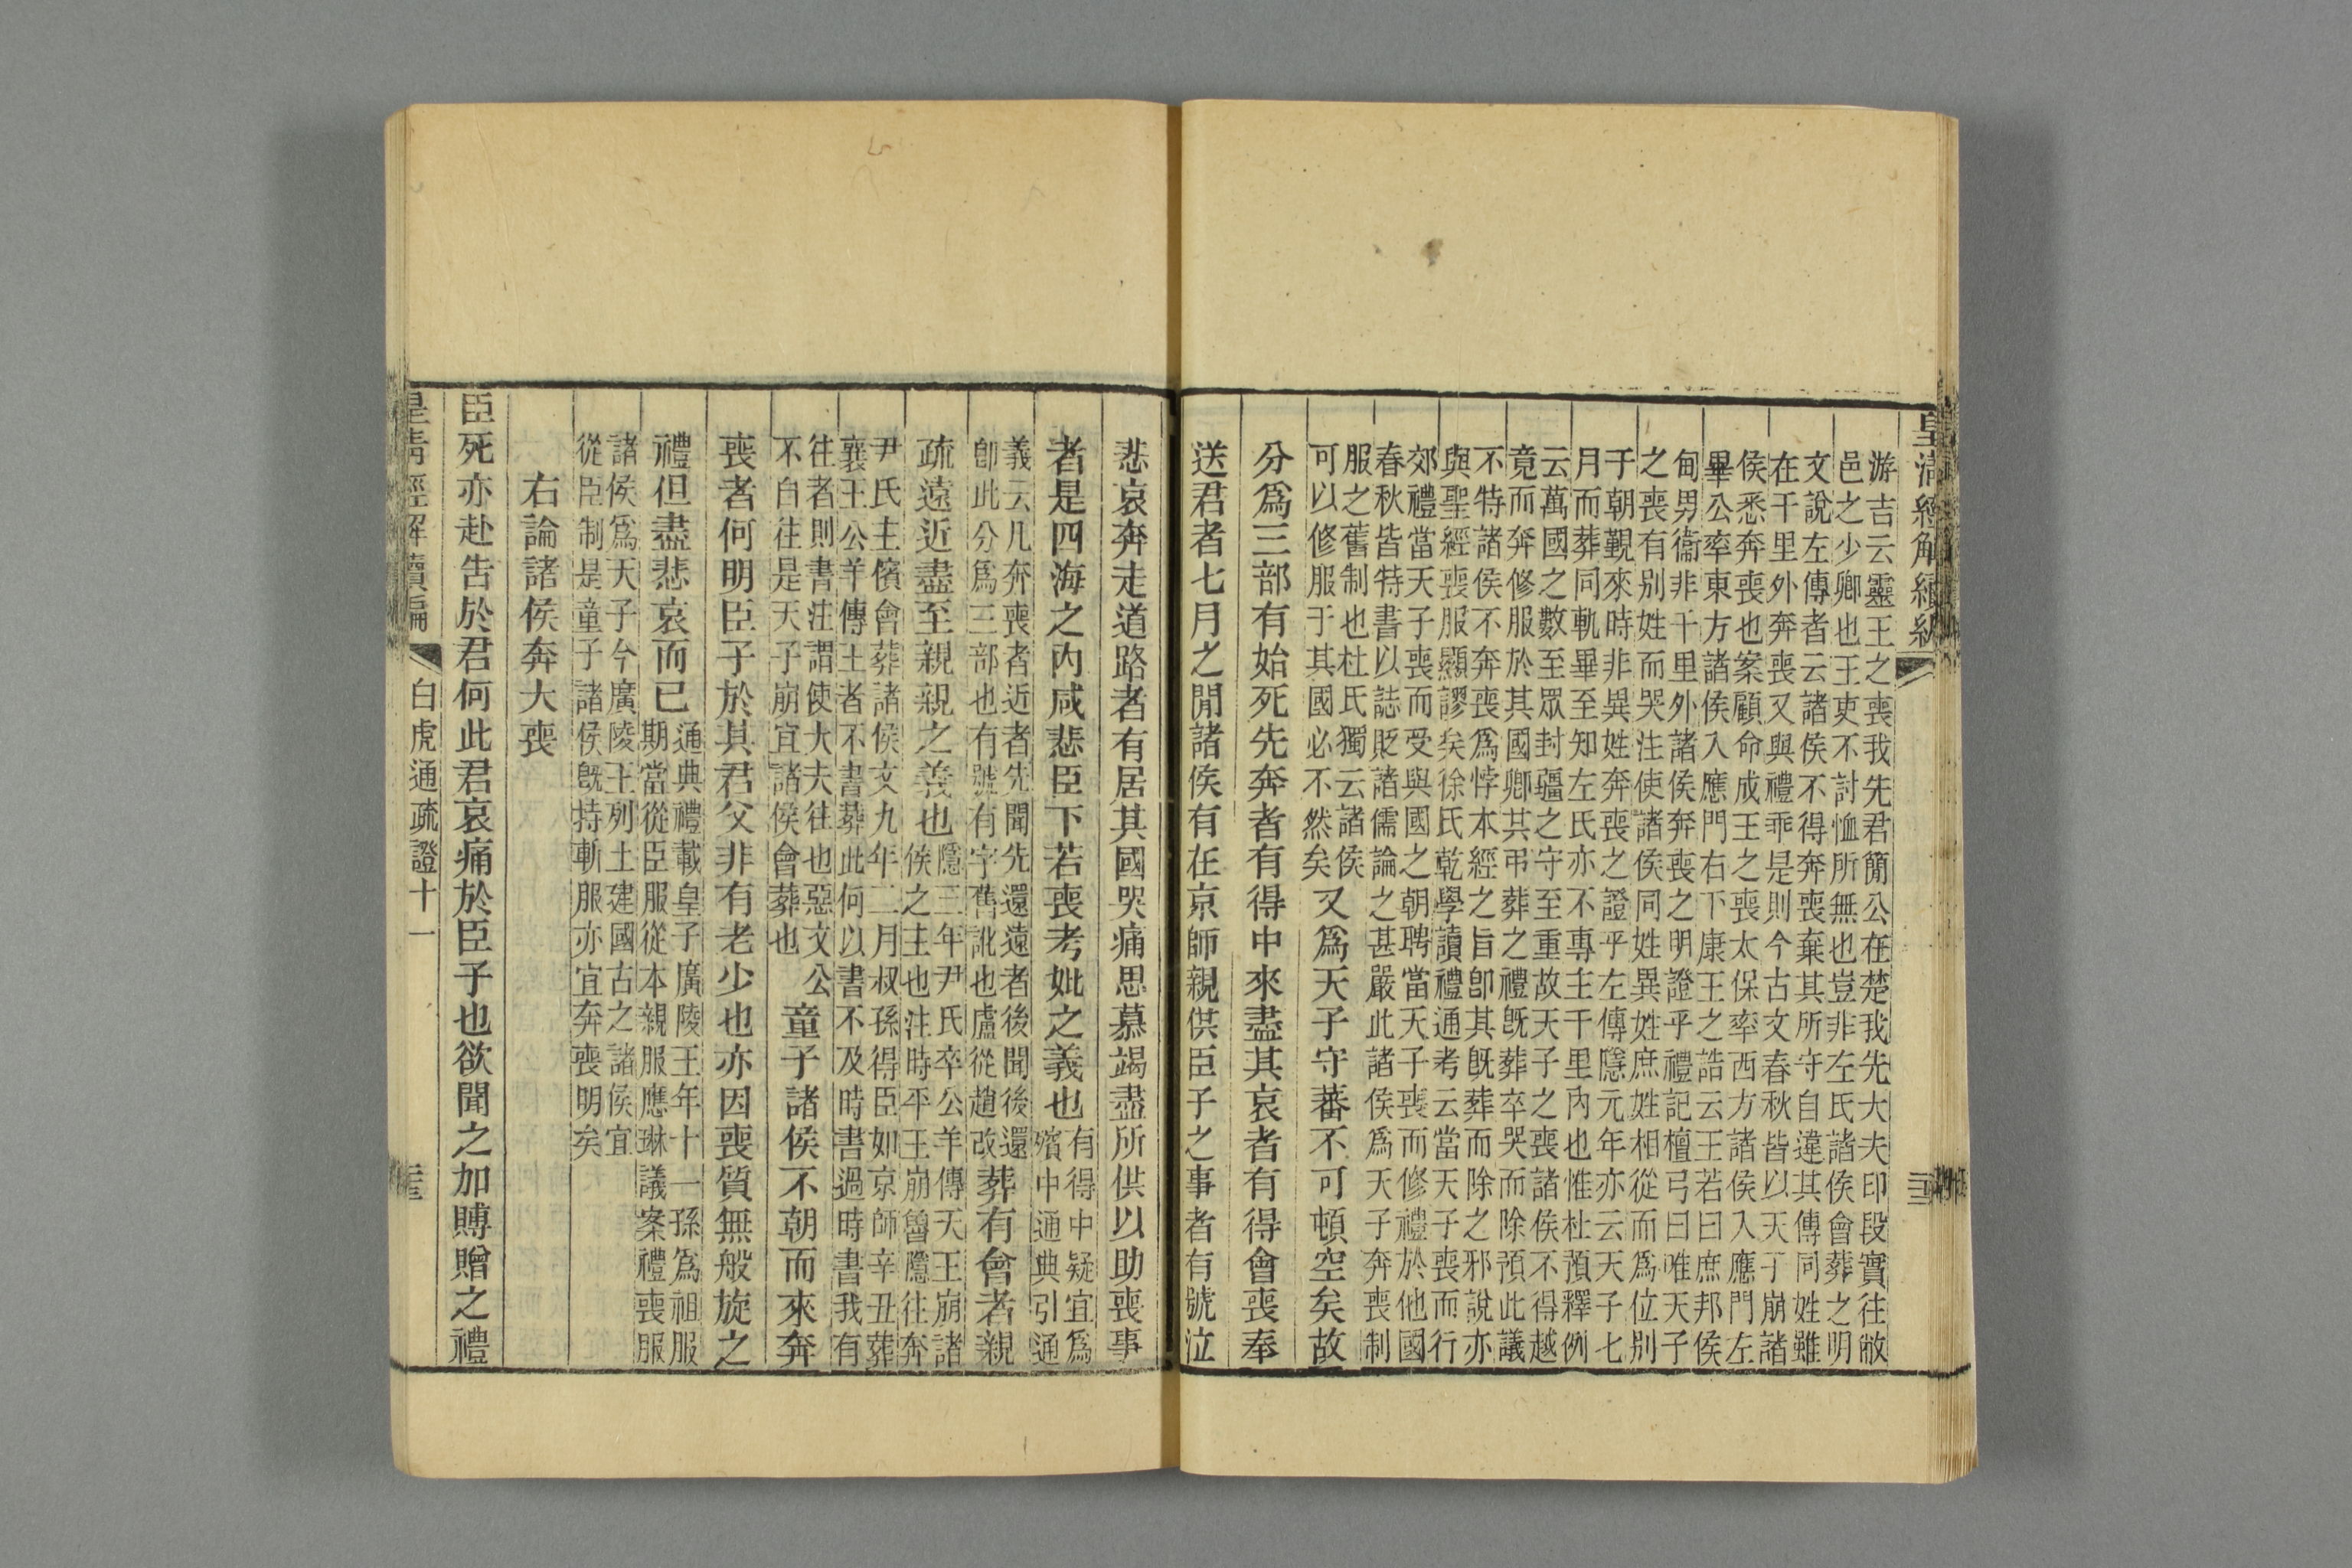 皇清經解續編
游吉云靈王之喪我先君簡公在楚我先大夫印段實往敝
邑之少卿也王吏不討恤所無也豈非左氏諸侯會葬之明
文說左傳者云諸侯不得奔喪棄其所守自違其傳同姓雖
在千里外奔喪又與禮乖是則今古文春秋皆以天子崩諸
侯悉奔喪也案顧命成王之喪太保率西方諸侯入應門左
畢公率東方諸侯入應門右下康王之誥云王若曰庶邦侯
甸男衞非千里外諸侯奔喪之明證乎禮記檀弓曰唯天子
之喪有別姓而哭注使諸侯同姓異姓庶姓相從而爲位別
于朝覲來時非異姓奔喪之證乎左傳隱元年亦云天子七
月而葬同軌畢至知左氏亦不專主千里內也惟杜預釋例
云萬國之數至眾封疆之守至重故天子之喪諸侯不得越
竟而奔修服於其國卿其弔葬之禮旣葬卒哭而除預此議
不特諸侯不奔喪爲悖本經之旨卽其旣葬而除之邪說亦
與聖經喪服顯謬矣徐氏乾學讀禮通考云當天子喪而行
郊禮當天子喪而受與國之朝聘當天子喪而修禮於他國
春秋皆特書以誌貶諸儒論之甚嚴此諸侯爲天子奔喪制
服之舊制也杜氏獨云諸侯
可以修服于其國必不然矣
又爲天子守蕃不可頓空矣故
分爲三部有始死先奔者有得中來盡其哀者有得會喪奉
送君者七月之閒諸侯有在京師親供臣子之事者有號泣
悲哀奔走道路者有居其國哭痛思慕竭盡所供以助喪事
者是四海之內咸悲臣下若喪考妣之義也
有得中疑宜爲
殯中通典引通
義云凡奔喪者近者先聞先還遠者後聞後還
卽此分爲三部也有號有字舊訛也盧從趙改
葬有會者親
疏遠近盡至親親之義也
隱三年尹氏卒公羊傳天王崩諸
侯之主也注時平王崩魯隱往奔
尹氏主儐會葬諸侯文九年二月叔孫得臣如京師辛丑葬
襄王公羊傳王者不書葬此何以書不及時書過時書我有
往者則書注謂使大夫往也惡文公
不自往是天子崩宜諸侯會葬也
童子諸侯不朝而來奔
喪者何明臣子於其君父非有老少也亦因喪質無般旋之
禮但盡悲哀而已
通典禮載皇子廣陵王年十一孫爲祖服
期當從臣服從本親服應琳議案禮喪服
諸侯爲天子今廣陵王列土建國古之諸侯宜
從臣制是童子諸侯旣持斬服亦宜奔喪明矣
右論諸侯奔大喪
臣死亦赴告於君何此君哀痛於臣子也欲聞之加賻贈之禮
皇清經解續編
白虎通疏證十一